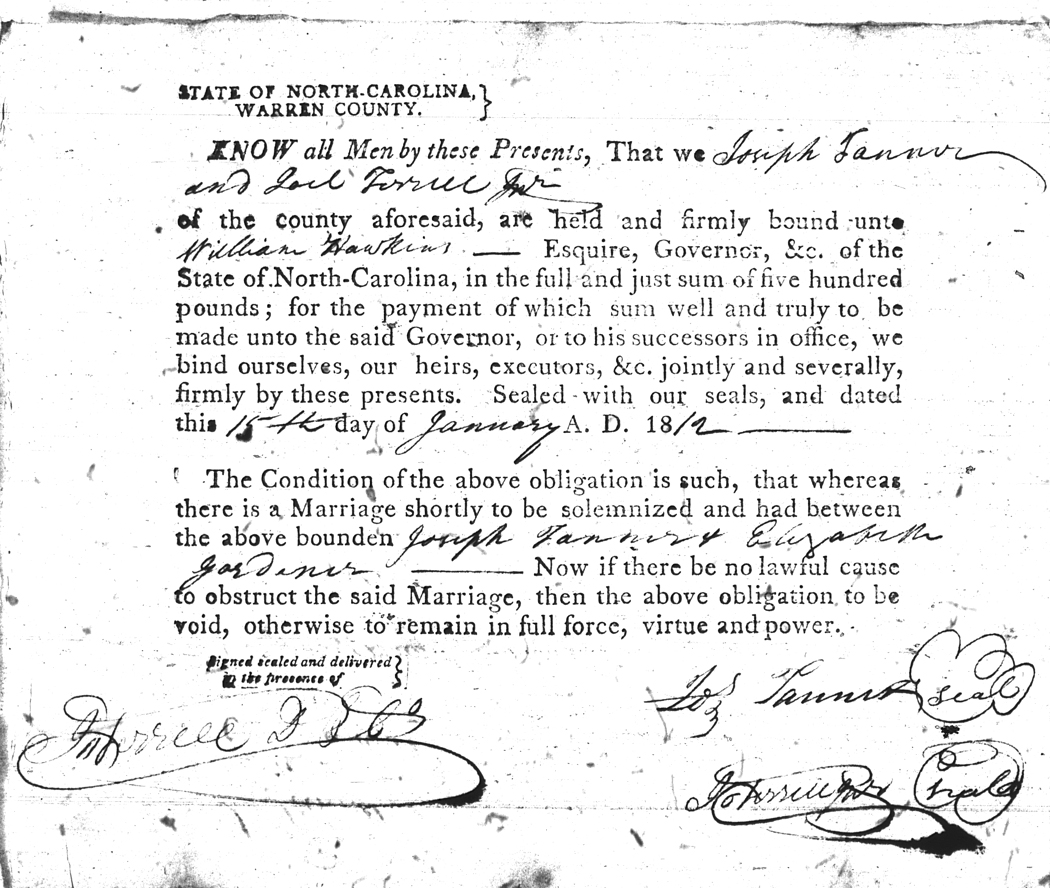 STATE OF NORTH-CAROLINA,
WARREN COUNTY.
KNOW all Men by these Presents, That we Joseph Tanner
and Joel Terrell Jnr
of the county aforesaid, are held and firmly bound unto
William Hawkins — Esquire, Governor, &c. of the
State of North-Carolina, in the full and just sum of five hundred
pounds; for the payment of which sum well and truly to be
made unto the said Governor, or to his successors in office, we
bind ourselves, our heirs, executors, &c. jointly and severally,
firmly by these presents. Sealed with our seals, and dated
this 15th day of January A. D. 1812 —
The Condition of the above obligation is such, that whereas
there is a Marriage shortly to be solemnized and had between
the above bounden Joseph Tanner & Elizabeth
Gardener — Now if there be no lawful cause
to obstruct the said Marriage, then the above obligation to be
void, otherwise to remain in full force, virtue and power.
Signed sealed and delivered
in the presence of
Jos Tanner seal
Terrell
Jo Terrell Jnr seal